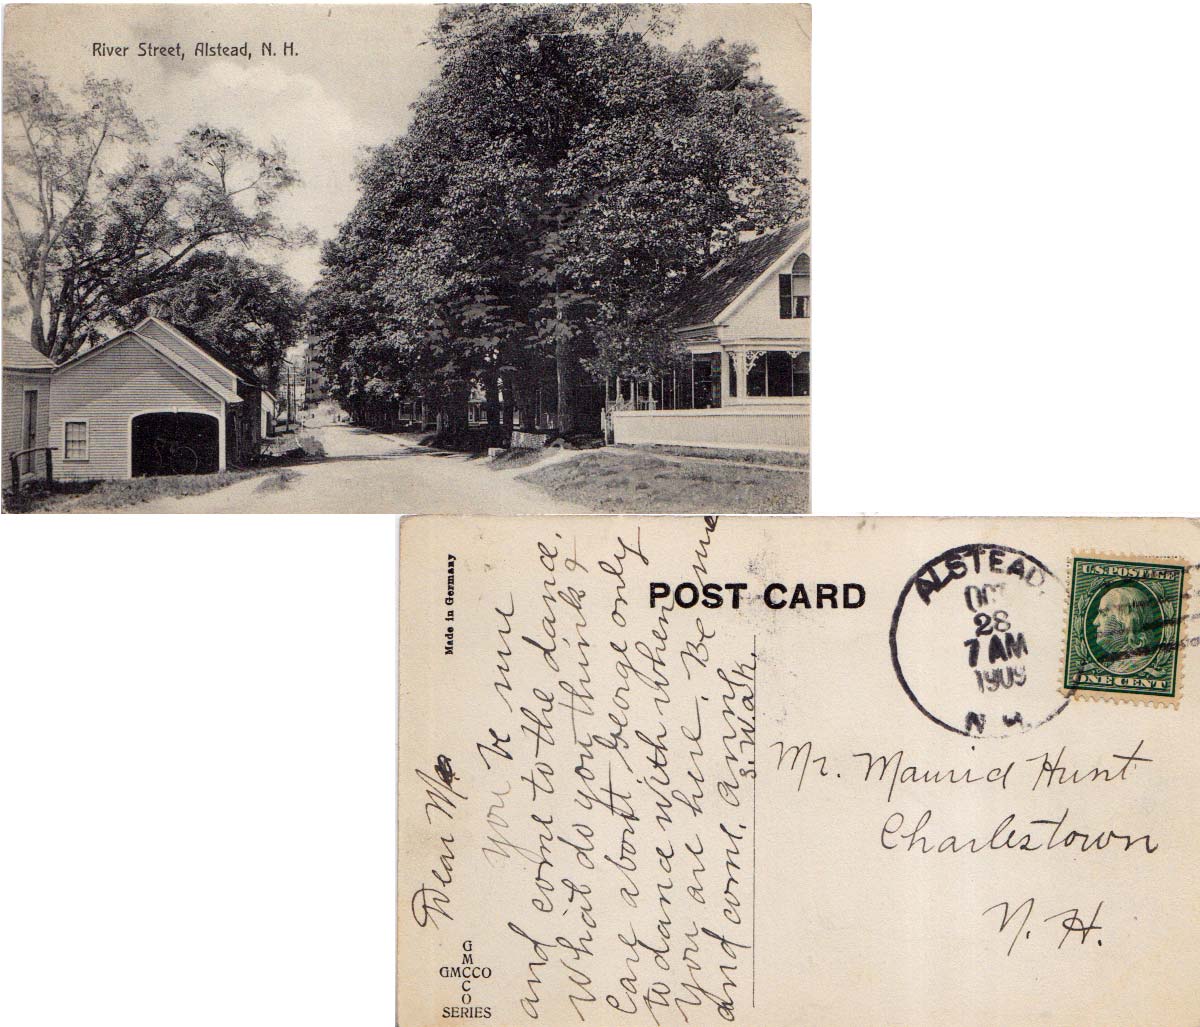 River Street, Alstead, N. H.
POST CARD
Made in Germany
ALSTEAD
OCT
28
7 AM
1909
N.H.
U.S. POSTAGE
ONE CENT
Dear
You be sure
and come to the dance.
What do you think I
care about George only
to dance with when
you are here. Be sure
and come. Ann
S. Wak.
Mr. Maurid Hunt
Charlestown
N. H.
G
M
GMCCO
C
O
SERIES